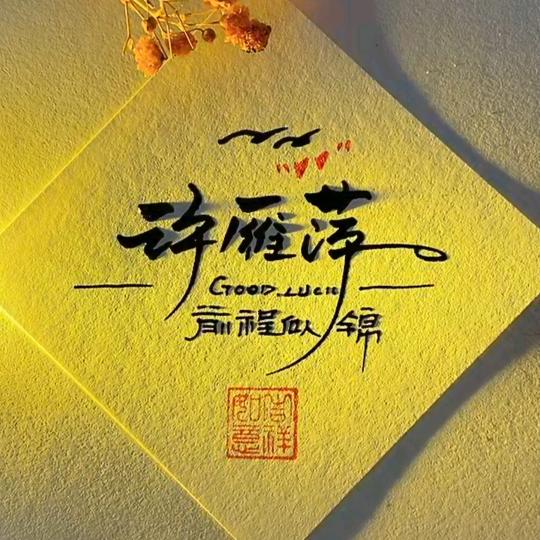 许雁萍
Good luck
前程似锦
吉祥如意